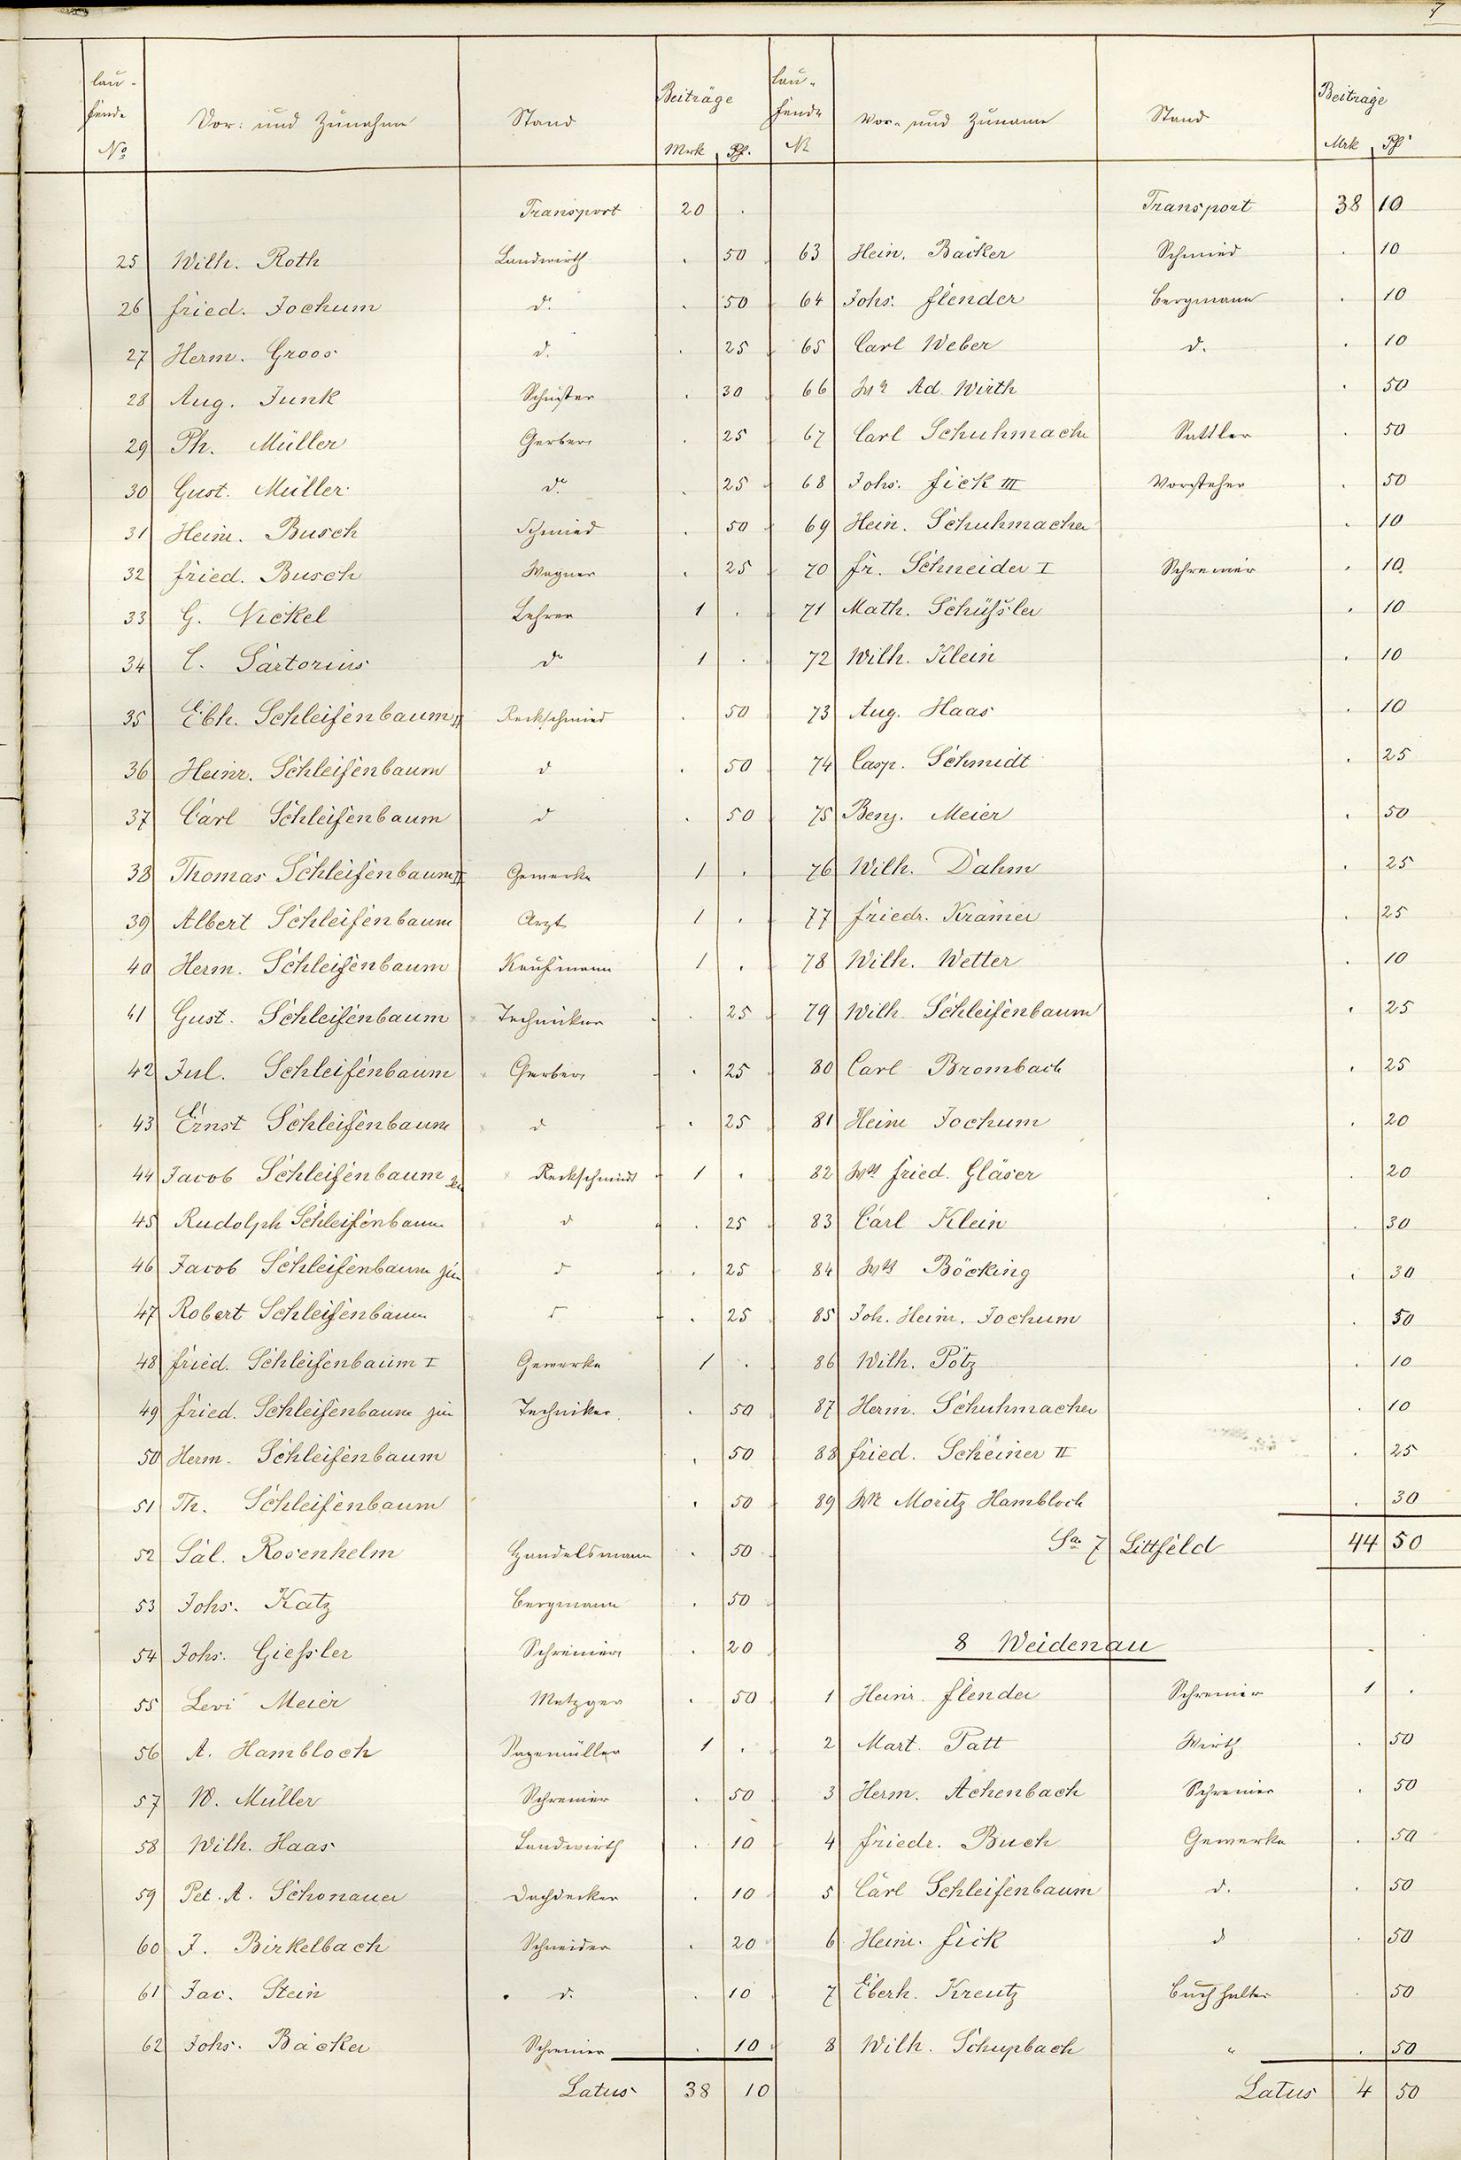 7
lau-
fende
No
Vor: und Zunahme
Stand
Beiträge
Mrk Pf.
Transport 20 .
25 Wilh. Roth Landwirth . 50
26 Fried. Jochum do . 50
27 Herm. Groos d. . 25
28 Aug. Junk Schuster . 30
29 Ph. Müller Gerber . 25
30 Gust. Müller do . 25
31 Heinr. Busch Schmied . 50
32 Fried. Busch Wagner . 25
33 G. Nickel Lehrer 1 .
34 C. Sartorius do 1 .
35 Ebh. Schleifenbaum II Reckschmied . 50
36 Heinr. Schleifenbaum d . 50
37 Carl Schleifenbaum d . 50
38 Thomas Schleifenbaum II Gewerke 1 .
39 Albert Schleifenbaum Arzt 1 .
40 Herm. Schleifenbaum Kaufmann 1 .
41 Gust. Schleifenbaum Techniker . 25
42 Jul. Schleifenbaum Gerber . 25
43 Ernst Schleifenbaum d . 25
44 Jacob Schleifenbaum sen Reckschmidt 1 .
45 Rudolph Schleifenbaum d . 25
46 Jacob Schleifenbaum jun d . 25
47 Robert Schleifenbaum d . 25
48 Fried. Schleifenbaum I Gewerke 1 .
49 Fried. Schleifenbaum jun Techniker . 50
50 Herm. Schleifenbaum . 50
51 Th. Schleifenbaum . 50
52 Sal. Rosenhelm Handelsmann . 50
53 Johs. Katz Bergmann . 50
54 Johs. Giessler Schreiner . 20
55 Levi Meier Metzger . 50
56 A. Hambloch Sagemüller 1 .
57 W. Müller Schreiner . 50
58 Wilh. Haas Landwirth . 10
59 Pet. A. Schonauer Dachdecker . 10
60 J. Birkelbach Schneider . 20
61 Jac. Stein d. . 10
62 Johs. Bäcker Schreiner . 10
Latus 38 10
lau-
fende
N
Vor- und Zuname
Stand
Beiträge
Mrk Pf
Transport 38 10
63 Hein. Bäcker Schmied . 10
64 Johs. Flender Bergmann . 10
65 Carl Weber d. . 10
66 Ww Ad. Wirth . 50
67 Carl Schuhmach Sattler . 50
68 Johs. Fick III Vorsteher . 50
69 Hein. Schuhmacher . 10
70 Fr. Schneider I Schreiner . 10
71 Math. Schüssler . 10
72 Wilh. Klein . 10
73 Aug. Haas . 10
74 Casp. Schmidt . 25
75 Benj. Meier . 50
76 Wilh. Dahm . 25
77 Friedr. Kramer . 25
78 Wilh. Wetter . 10
79 Wilh Schleifenbaum . 25
80 Carl Brombach . 25
81 Heinr Jochum . 20
82 Ww Fried. Gläser . 20
83 Carl Klein . 30
84 Ww Böcking . 30
85 Joh. Heinr. Jochum . 50
86 Wilh. Pötz . 10
87 Herm. Schuhmacher . 10
88 Fried. Scheiner II . 25
89 Ww Moritz Hambloch . 30
Sa 7 Littfeld 44 50
8 Weidenau
1 Heinr. Flender Schreiner 1 .
2 Mart. Patt Wirth . 50
3 Herm. Achenbach Schreiner . 50
4 Friedr. Buch Gewerke . 50
5 Carl Schleifenbaum d. . 50
6 Heinr. Fick d . 50
7 Eberh. Kreutz Buchhalter 50
8 Wilh. Schupbach " . 50
Latus 4 50